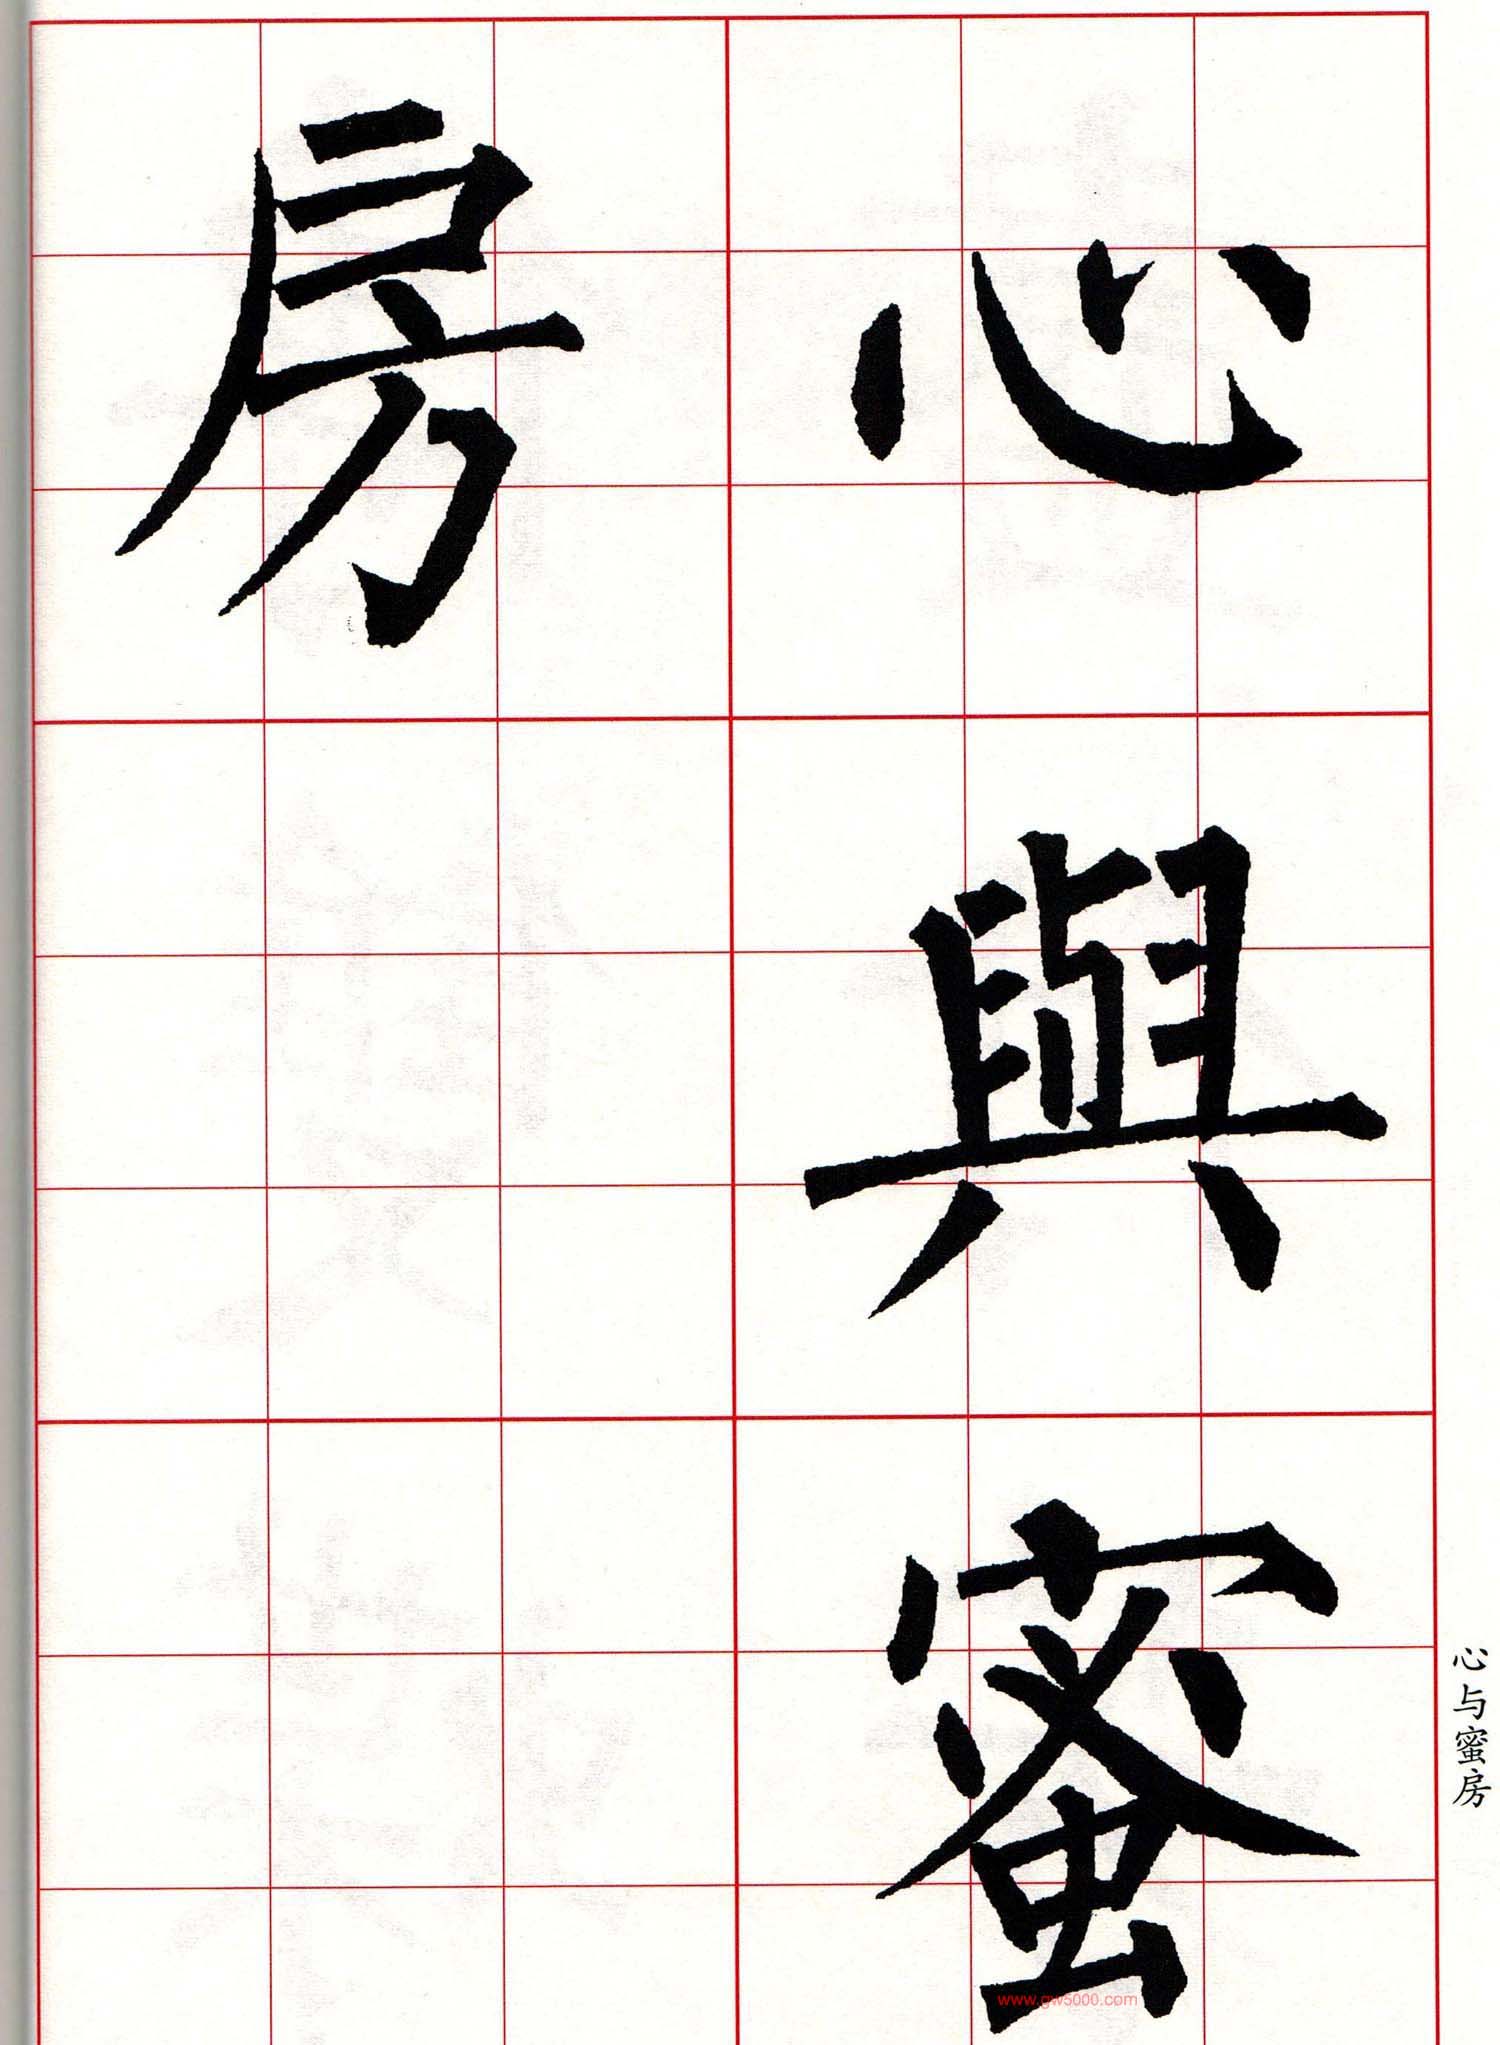 心與蜜
房
心与蜜房
www.gw5000.com